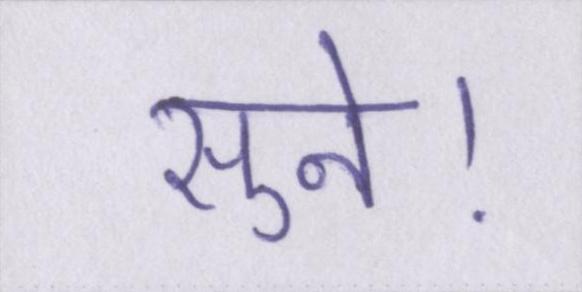 सुने!